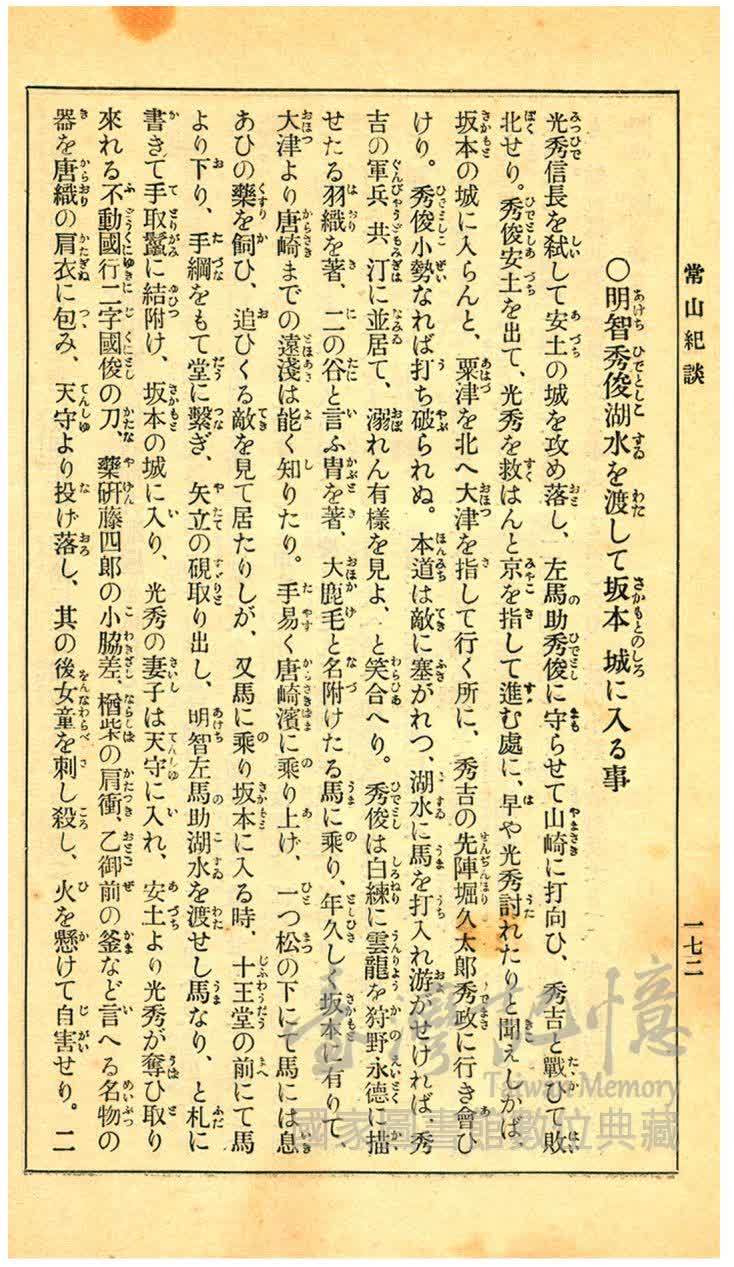 常山紀談
一七二
〇明智秀俊湖水を渡して坂本城に入る事
光秀信長を弑して安土の城を攻め落し、左馬助秀俊に守らせて山崎に打向ひ、秀吉と戰ひて敗
北せり。秀俊安土を出て、光秀を救はんと京を指して進む處に、早や光秀討れたりと聞えしかば、
坂本の城に入らんと、粟津を北へ大津を指して行く所に、秀吉の先陣堀久太郎秀政に行き會ひ
けり。秀俊小勢なれば打ち破られぬ。本道は敵に塞がれつ、湖水に馬を打入れ游がせければ、秀
吉の軍兵共汀に並居て、溺れん有樣を見よ、と笑合へり。秀俊は白練に雲龍を狩野永德に描
せたる羽織を著、二の谷と言ふ冑を著、大鹿毛と名附けたる馬に乘り、年久しく坂本に有りて、
大津より唐崎までの遠淺は能く知りたり。手易く唐崎濱に乘り上げ、一つ松の下にて馬には息
あひの藥を飼ひ、追ひくる敵を見て居たりしが、又馬に乘り坂本に入る時、十王堂の前にて馬
より下り、手綱をもて堂に繫ぎ、矢立の硯取り出し、明智左馬助湖水を渡せし馬なり、と札に
書きて手取鬣に結附け、坂本の城に入り、光秀の妻子は天守に入れ、安土より光秀が奪ひ取り
來れる不動國行二字國俊の刀、藥硏藤四郎の小脇差、楢柴の肩衝、乙御前の釜など言へる名物の
器を唐織の肩衣に包み、天守より投げ落し、其の後女童を刺し殺し、火を懸けて自害せり。二
臺灣記憶
Taiwan Memory
國家圖書館數位典藏